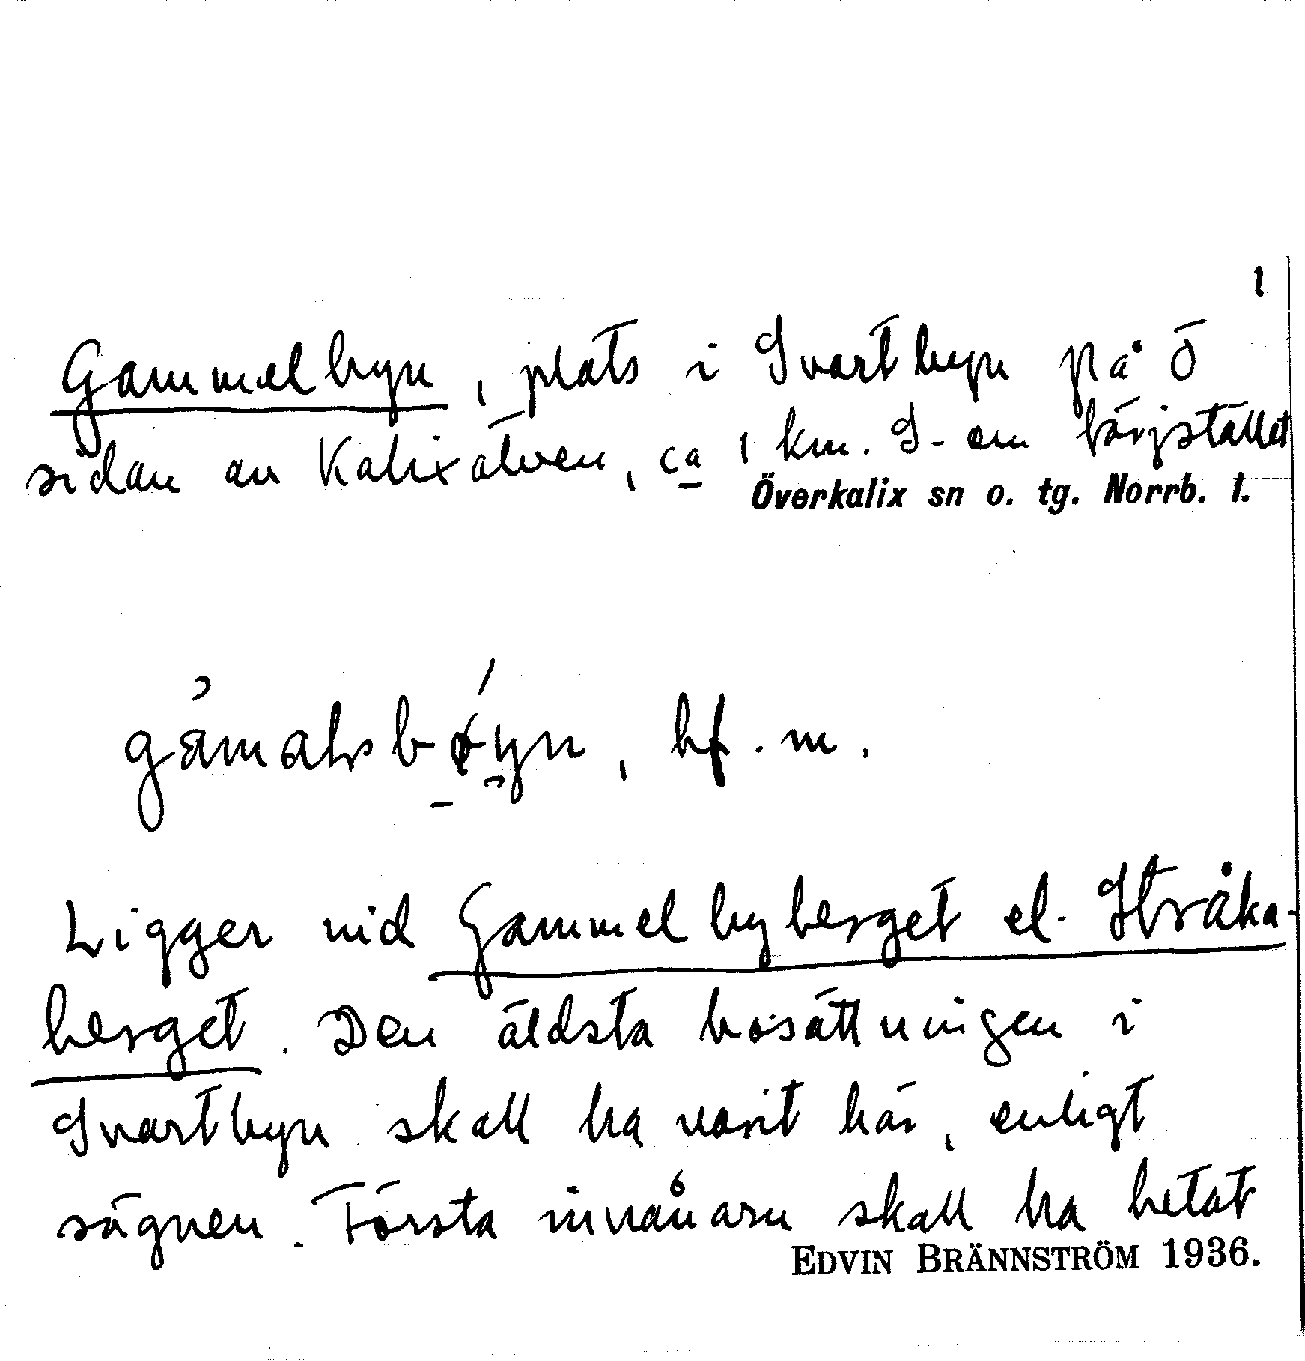 1
Gammelbyn, plats i Svartbyn på Ö
sidan av Kalixälven, ca 1 km. S. om färjstället
Överkalix sn o. tg. Norrb. l.
bf. m.
Ligger vid Gammelbyberget el. Stråka-
berget. Den äldsta bosättningen i
Svartbyn skall ha varit här, enligt
sägnen. Första invånaren skall ha hetat
EDVIN BRÄNNSTRÖM 1936.